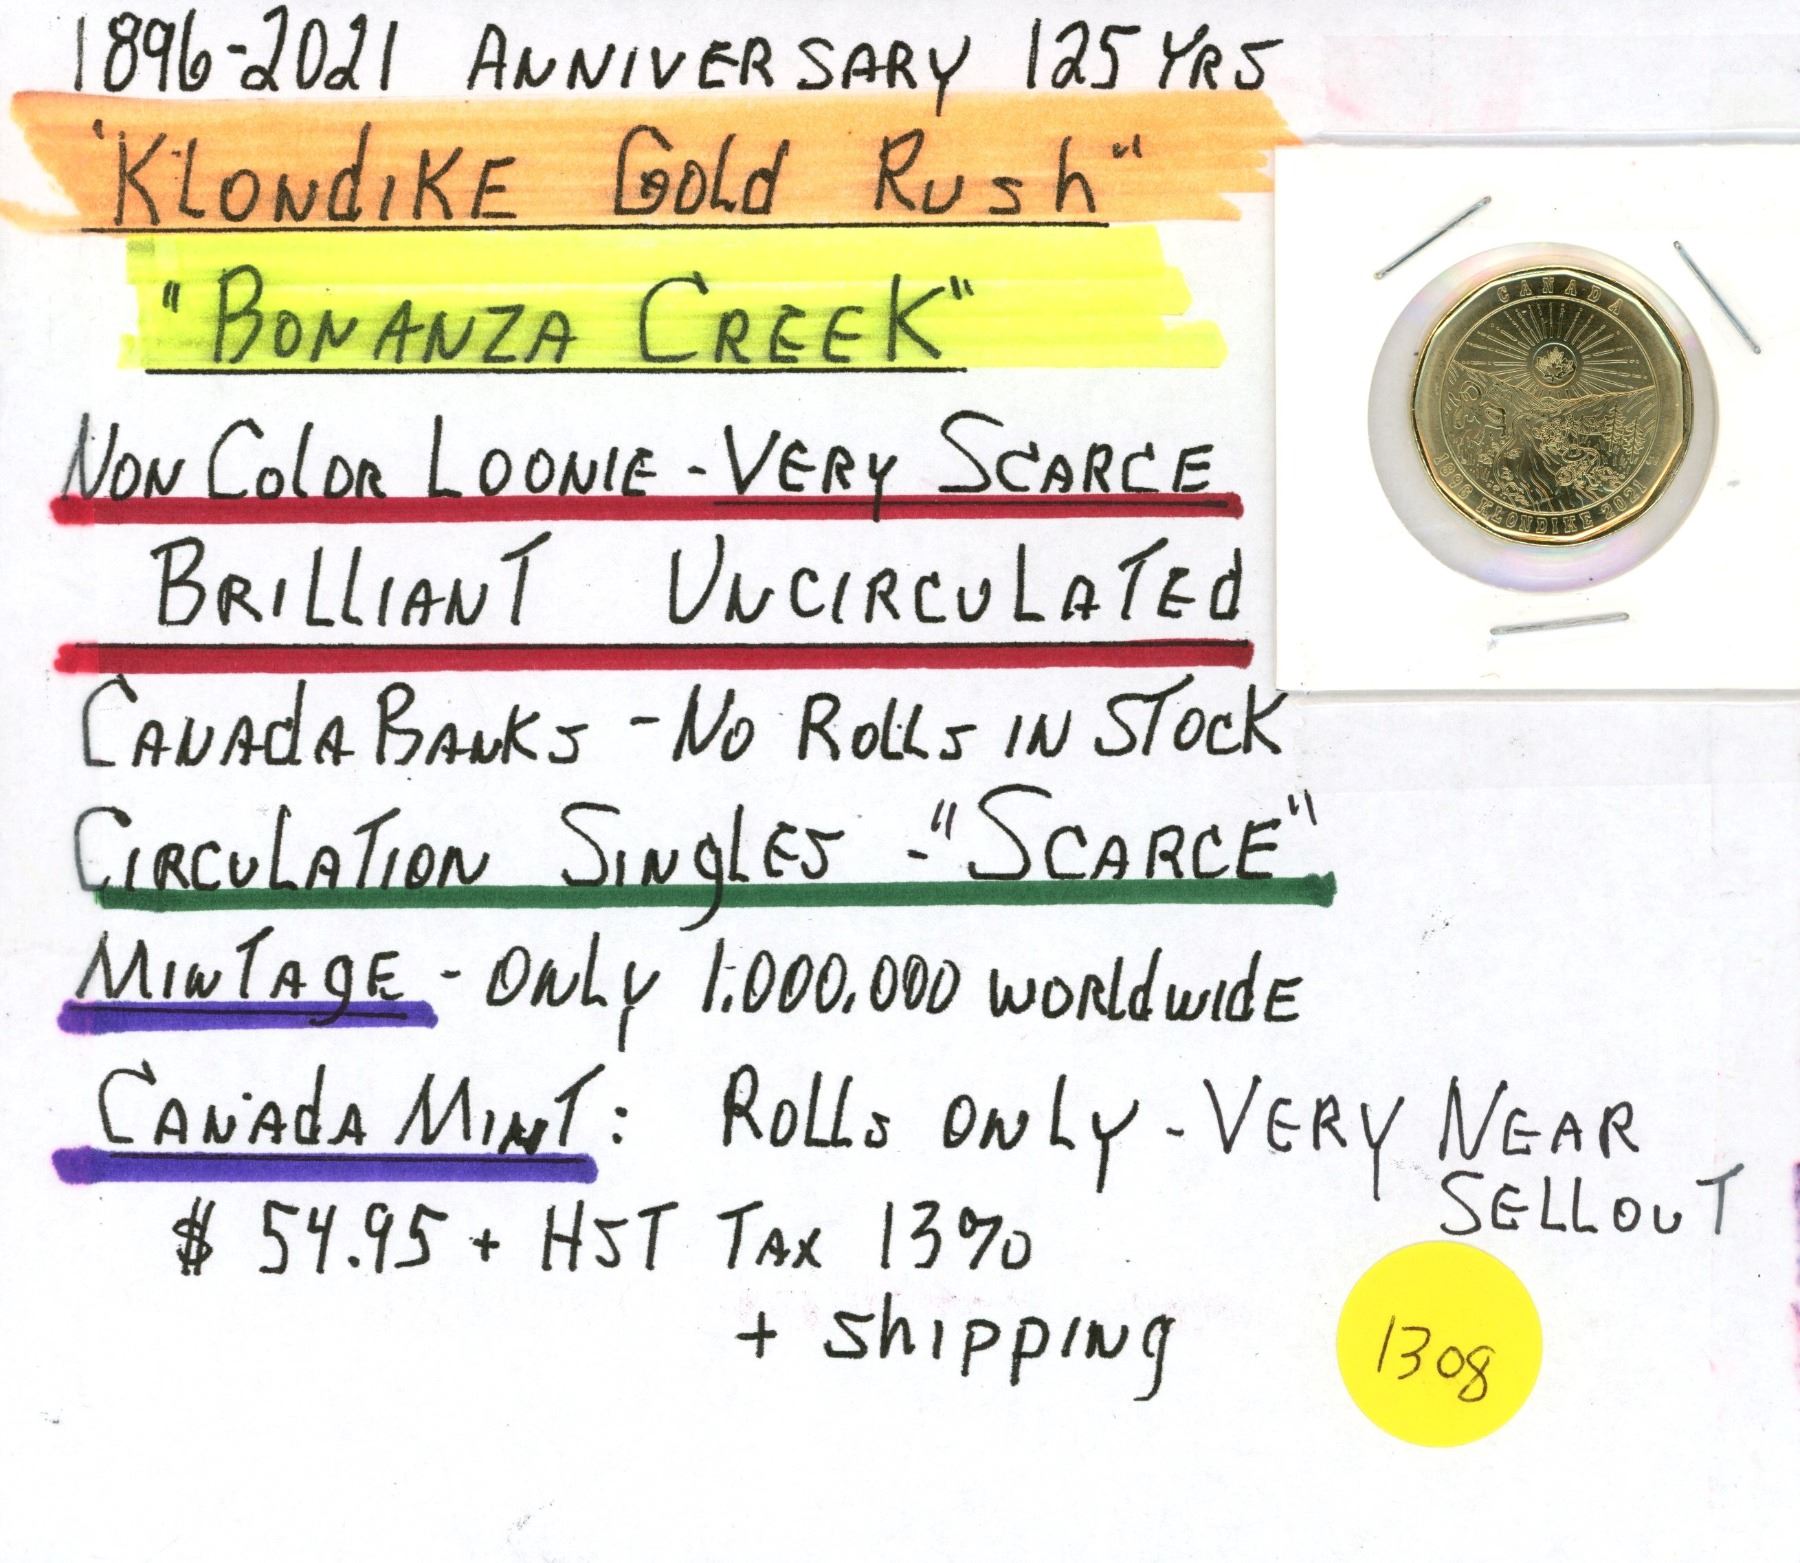 1896-2021 ANNIVERSARY 125 YRS
"KLONDIKE GOLD RUSH"
"BONANZA CREEK"
NON COLOR LOONIE - VERY SCARCE
BRILLIANT UNCIRCULATED
CANADA BANKS - NO ROLLS IN STOCK
CIRCULATION SINGLES - "SCARCE"
MINTAGE - ONLY 1,000,000 WORLDWIDE
CANADA MINT: ROLLS ONLY - VERY NEAR
SELLOUT
$ 54.95 + HST TAX 13%
+ SHIPPING
1308
CANADA
1896 KLONDIKE 2021